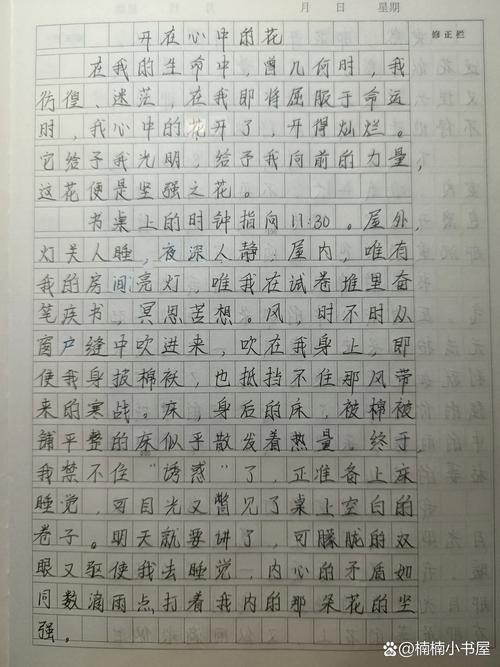 月 日 星期
开在心中的花
修正栏
在我的生命中，曾几何时，我
彷徨、迷茫，在我即将屈服于命运
时，我心中的花开了，开得灿烂。
它给予我光明，给予我向前的力量，
这花便是坚强之花。
书桌上的时钟指向11:30。屋外，
灯关人睡，夜深人静，屋内，唯有
我的房间亮灯，唯我在试卷堆里奋
笔疾书，冥思苦想。风，时不时从
窗户缝中吹进来，吹在我身上，即
使我身披棉袄，也抵挡不住那风带
来的寒战。床，身后的床，被棉被
铺平整的床似乎散发着热量，终于，
我禁不住“诱惑”了，正准备上床
睡觉，可目光又瞥见了桌上空白的
卷子。明天就要讲了，可朦胧的双
眼又驱使我去睡觉，内心的矛盾如
同数滴雨点打着我内的那朵花的坚
强。
@楠楠小书屋